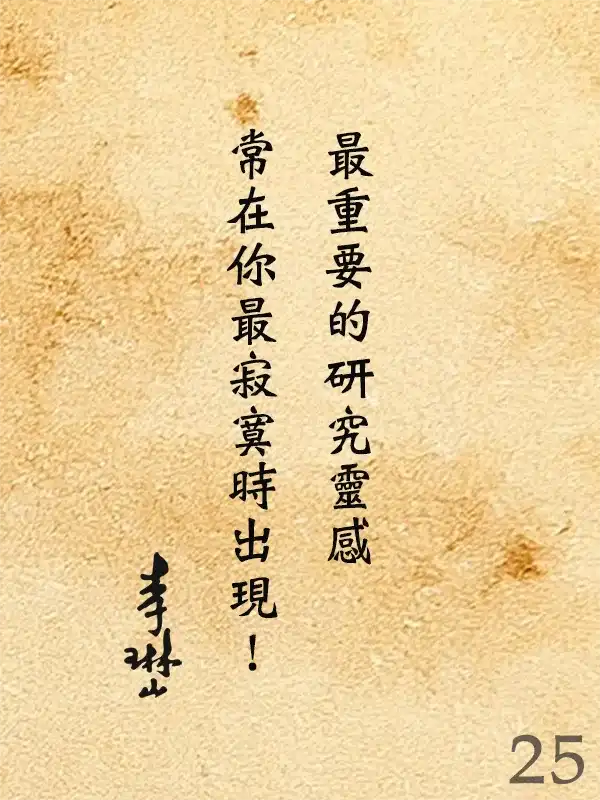 最重要的研究靈感
常在你最寂寞時出現！
李琳山
25